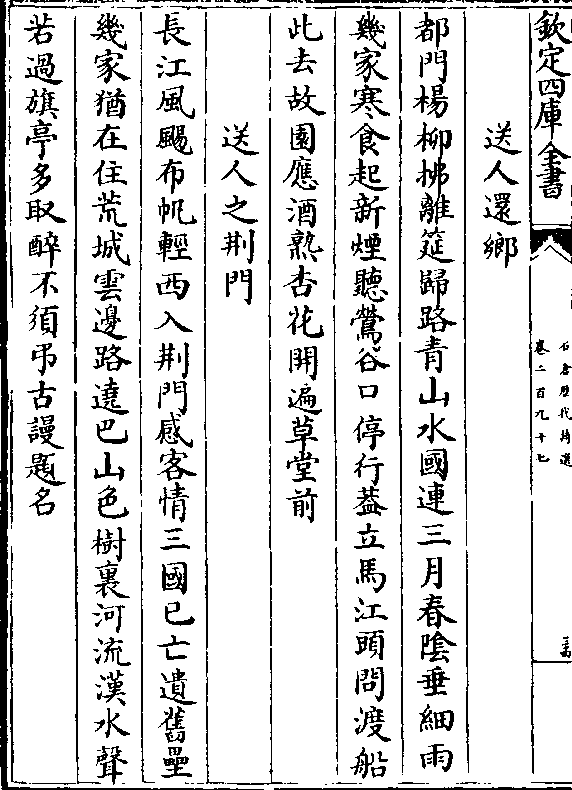 欽定四庫全書
石倉歷代詩選
卷二百九十七
送人還鄉
都門楊柳拂離筵歸路青山水國連三月春陰垂細雨
幾家寒食起新煙聽鶯谷口停行葢立馬江頭問渡船
此去故園應酒熟杏花開遍草堂前
送人之荆門
長江風颺布帆輕西入荆門感客情三國已亡遺舊壘
幾家猶在住荒城雲邊路遶巴山色樹裏河流漢水聲
若過旗亭多取醉不須弔古謾題名